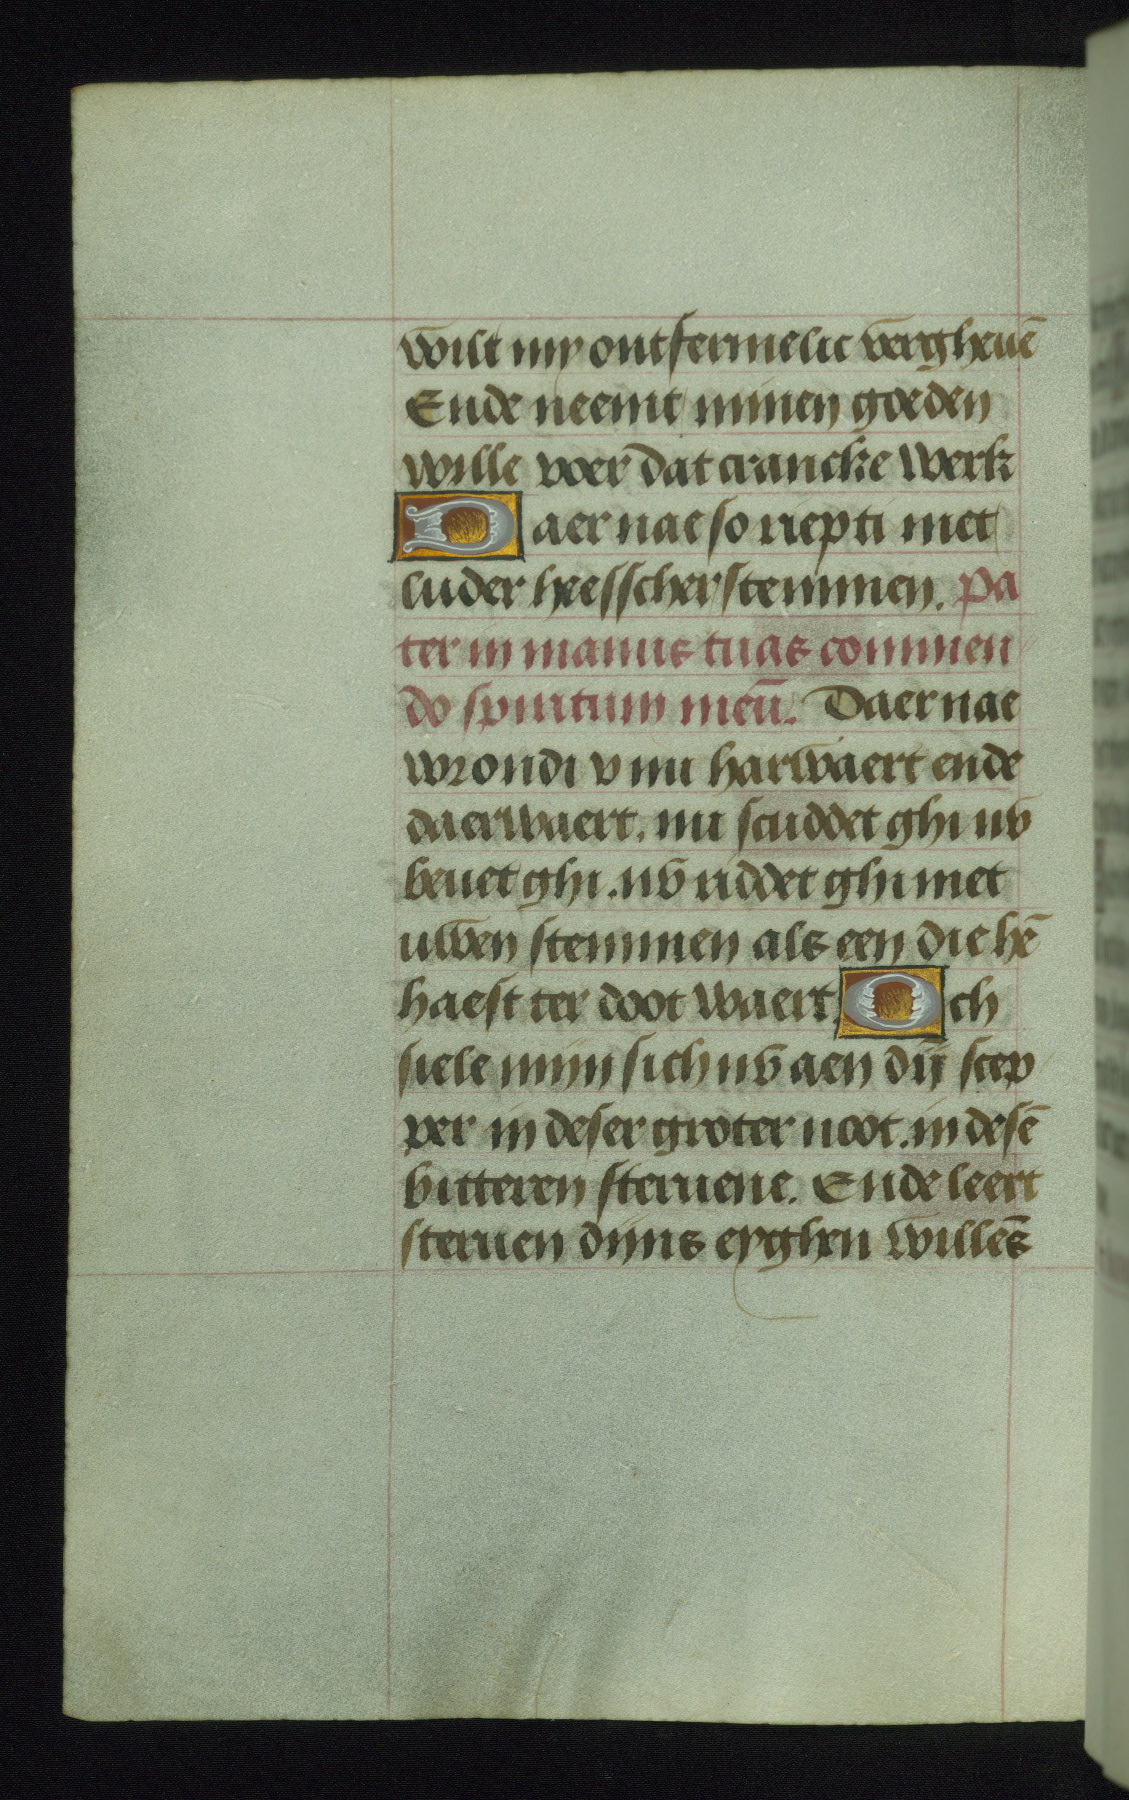 wilt my ontfermelic vergheuē
Ende neemt minen goeden
wille voer dat crancke werk
Daer nae so riepti met
luder heesscher stemmen. Pa
ter in manus tuas commen
do spiritum meū. Daer nae
wrondi v nu harwaert ende
daerwaert. nu scuddet ghi nv
beuet ghi. nv riddet ghi met
uwen stemmen als een die hē
haest ter doot waert. Och
siele mijn sich nv aen dij scep
per in deser groter noot. in desē
bitteren steruene. Ende leert
steruen dijns eyghen willēs